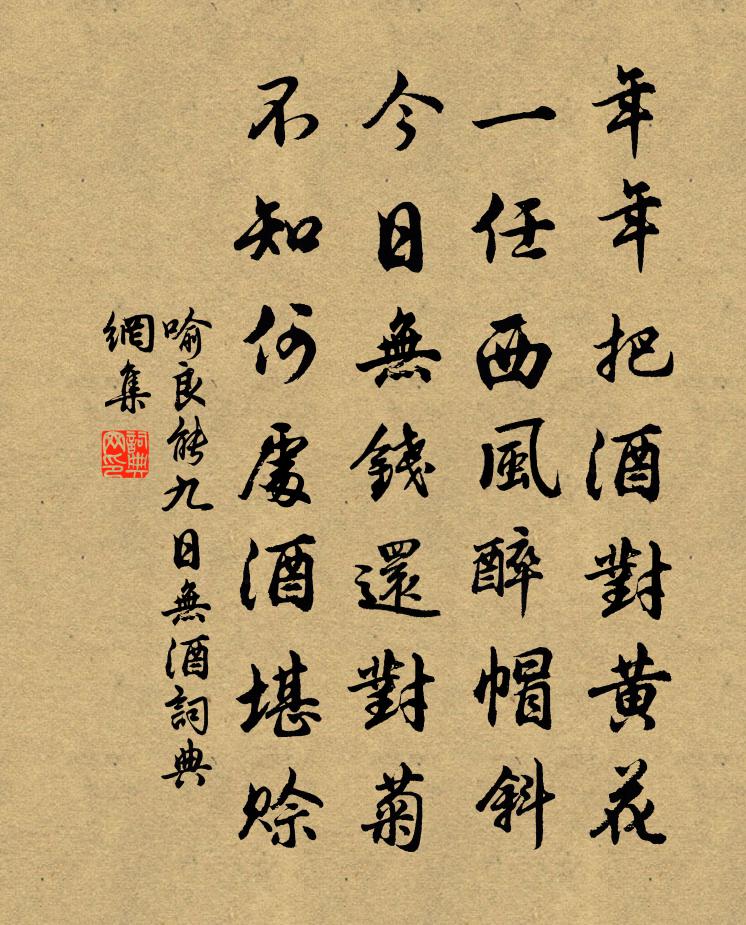 年年把酒對黄花
一任西風醉帽斜
今日無錢還對菊
不知何處酒堪賒
喻良能九日無酒詞典
網集
詞典網印